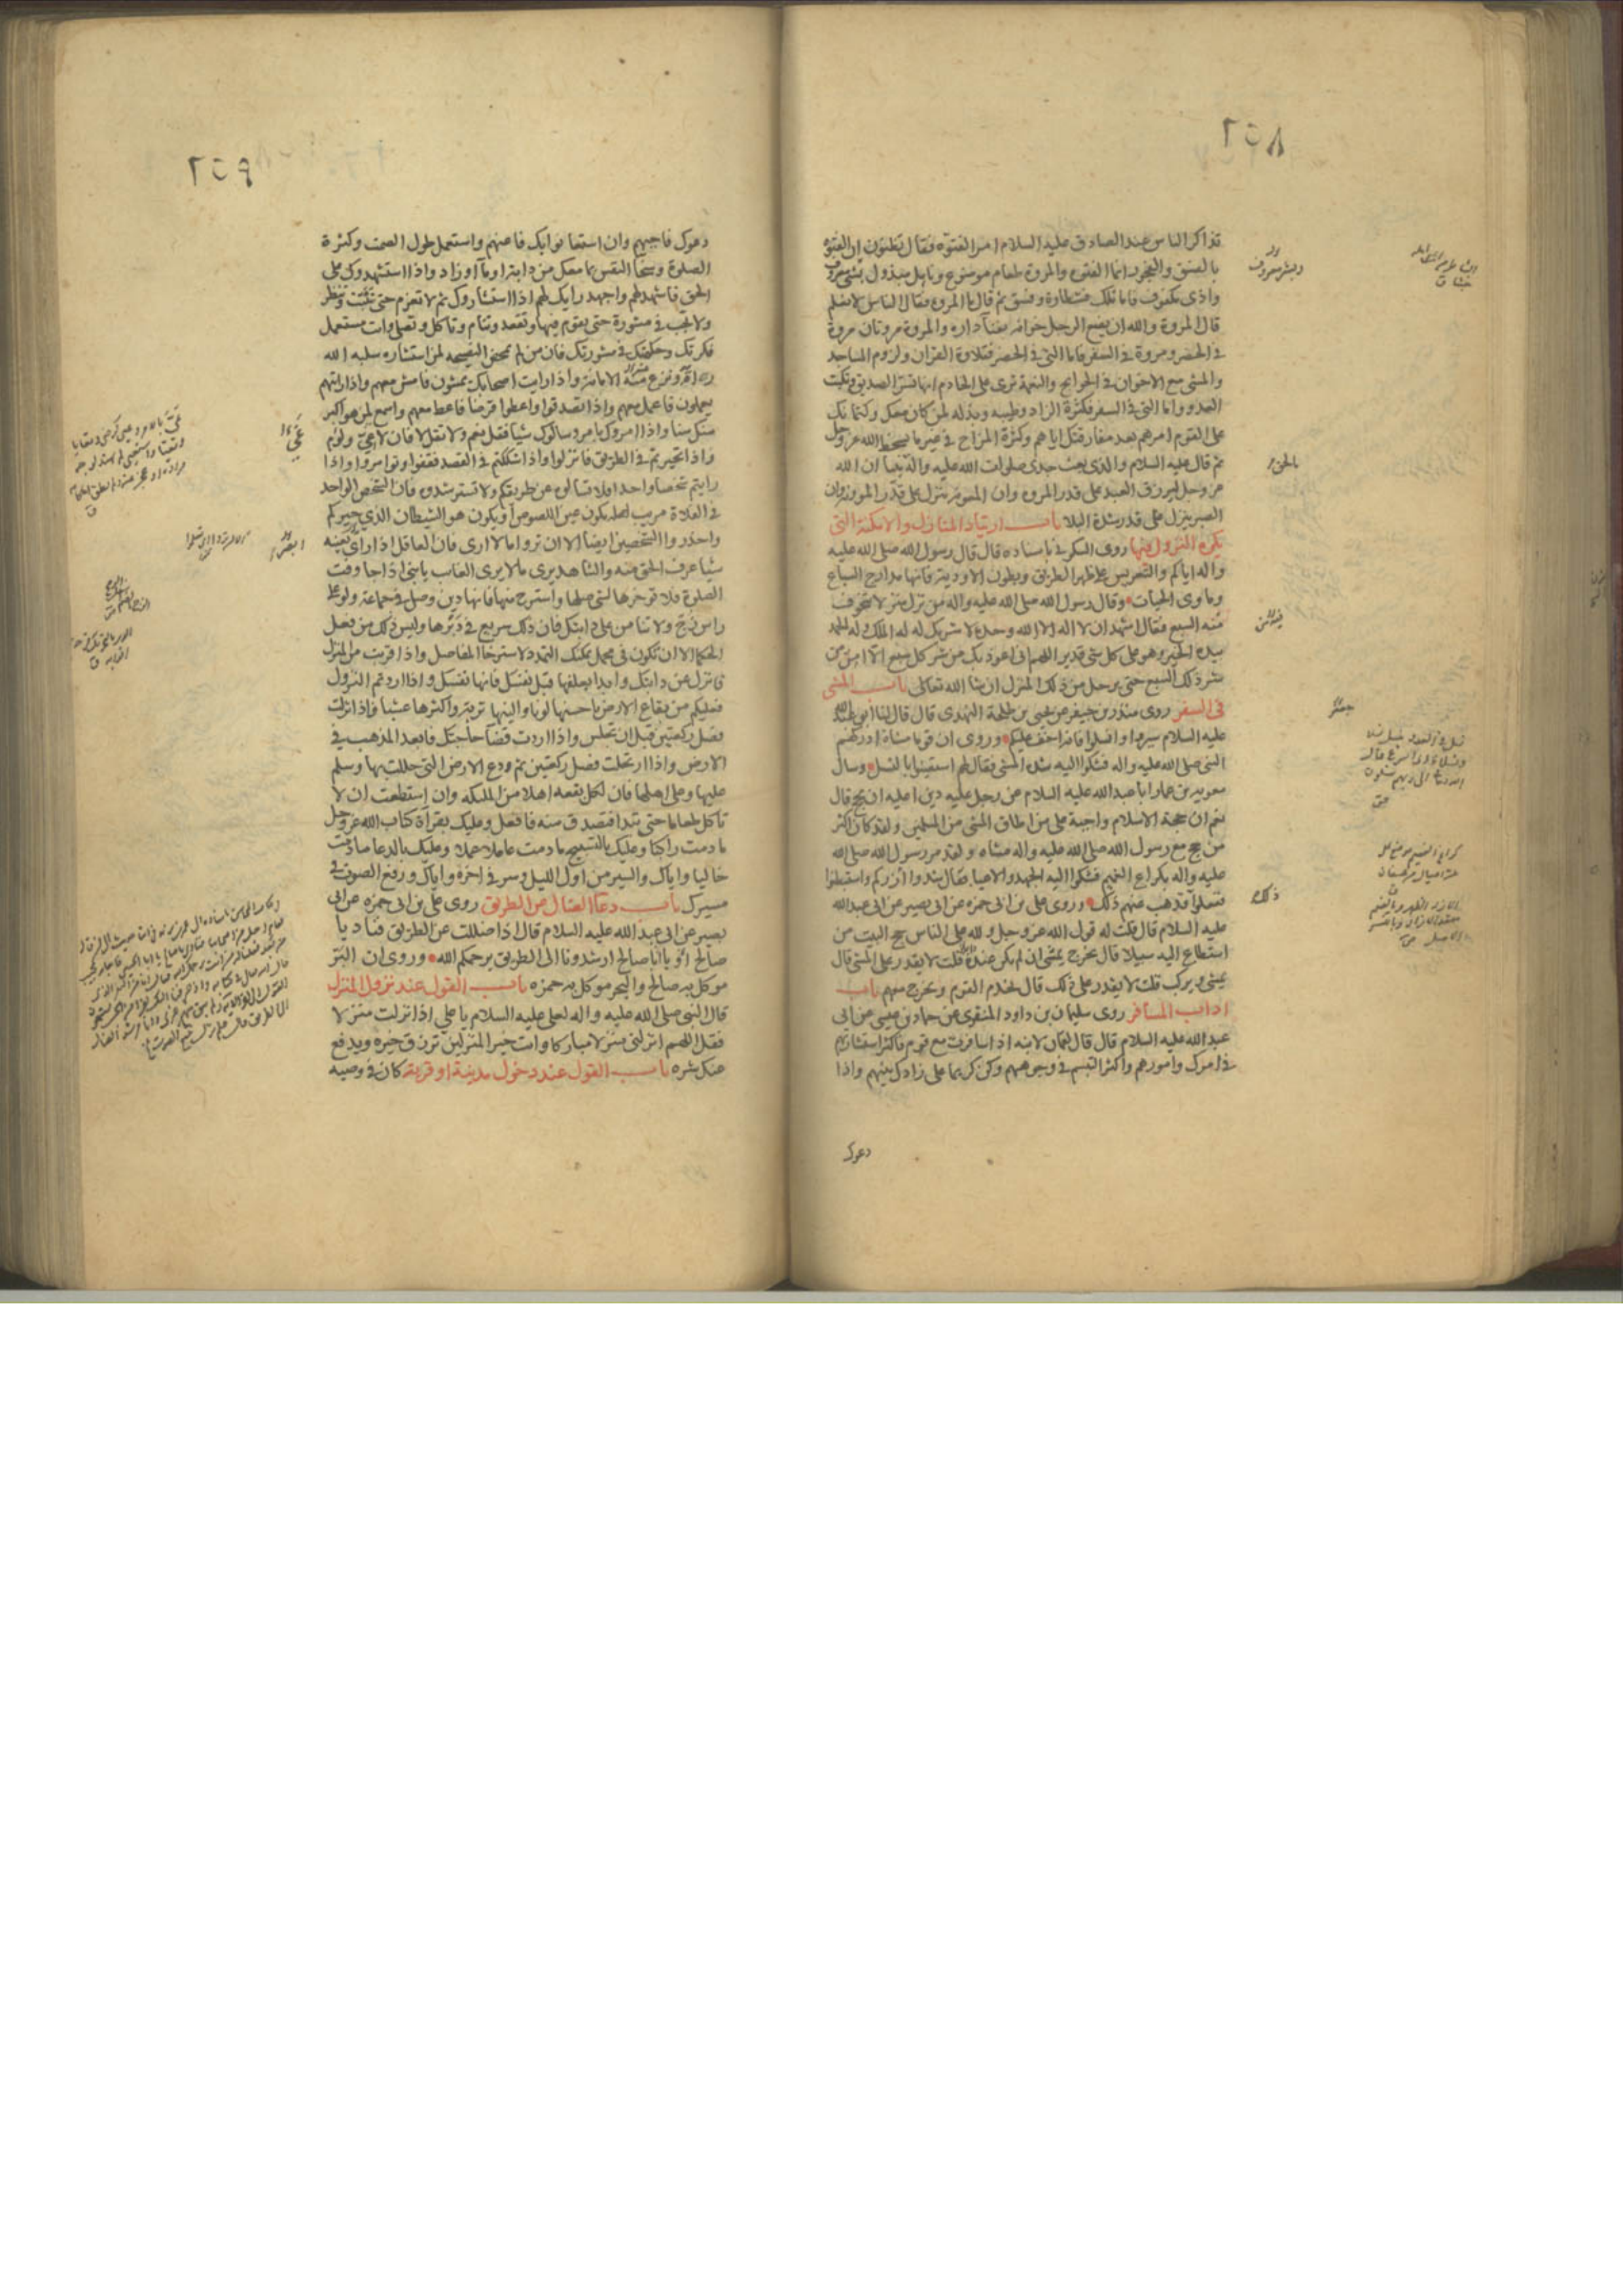 ٢٥٨
تذاكر الناس عند الصادق عليه السلام امر الفتوة فقال تظنون ان الفتوة
بالفسق والفجور انما الفتوة والمروة طعام موضوع ونايل مبذول بشئ معروف
واذى مكفوف فاما تلك فشطارة وفسق ثم قال ما المروة فقال الناس لا نعلم
قال المروة والله ان يضع الرجل خوانه بفنآ داره والمروة مروتان مروة
في الحضر ومروة في السفر فاما التي في الحضر فتلاوة القران ولزوم المساجد
والمشى مع الاخوان في الحوايج والنعمة ترى على الخادم انها تسر الصديق وتكبت
العدو واما التي في السفر فكثرة الزاد وطيبه وبذله لمن كان معك وكتمانك
على القوم امرهم بعد مفارقتك اياهم وكثرة المزاح في غير ما يسخط الله عز وجل
ثم قال عليه السلام والذى بعث جدى صلوات الله عليه واله نبيا ان الله
عز وجل ليرزق العبد على قدر المروه وان المعونة تنزل على قدر المؤنة وان
الصبر ينزل على قدر شدة البلا باب ارتياد المنازل والامكنة التي
يكره النزول فيها روى السكونى باسناده قال قال رسول الله صلى الله عليه
واله اياكم والتعريس على ظهر الطريق وبطون الاودية فانها مدارج السباع
وماوى الحيات وقال رسول الله صلى الله عليه واله من نزل منزلا يتخوف
فيه السبع فقال اشهد ان لا اله الا الله وحده لا شريك له له الملك وله الحمد
بيده الخير وهو على كل شئ قدير اللهم انى اعوذ بك من شر كل سبع الا امن من
شر ذلك السبع حتى يرحل من ذلك المنزل ان شا الله تعالى باب المشى
في السفر روى منذر بن جيفر عن يحيى بن طلحة النهدى قال قال لنا ابو عبد الله
عليه السلام سيروا وانسلوا فانه اخف عليكم وروى ان قوما مشاة ادركهم
النبى صلى الله عليه واله فشكوا اليه شدة المشى فقال لهم استعينوا بالنسل وسال
معوية بن عمار ابا عبد الله عليه السلام عن رجل عليه دين اعليه ان يحج قال
نعم ان حجة الاسلام واجبة على من اطاق المشى من المسلمين ولقد كان اكثر
من حج مع رسول الله صلى الله عليه واله مشاة ولقد مر رسول الله صلى الله
عليه واله بكراع الغميم فشكوا اليه الجهد والاعيا فقال شدوا ازركم واستبطنوا
ففعلوا فذهب عنهم ذلك وروى على بن ابى حمزه عن ابى بصير عن ابى عبد الله
عليه السلام قال قلت له قول الله عز وجل ولله على الناس حج البيت من
استطاع اليه سبيلا قال يخرج يمشى ان لم يكن عنده قلت لا يقدر على المشى قال
يمشى ويركب قلت لا يقدر على ذلك قال يخدم القوم ويخرج معهم باب
اداب المسافر روى سليمان بن داود المنقرى عن حماد بن عيسى عن ابى
عبد الله عليه السلام قال قال لقمان لابنه اذا سافرت مع قوم فاكثر استشارتهم
في امرك وامورهم واكثر التبسم في وجوههم وكن كريما على زادك بينهم واذا
دعوك
ذلك
٢٥٩
دعوك فاجبهم وان استعانوا بك فاعنهم واستعمل طول الصمت وكثرة
الصلوة وسخآ النفس بما معك من دابة او مآ او زاد واذا استشهدوك على
الحق فاشهد لهم واجهد رايك لهم اذا استشاروك ثم لا تعزم حتى تثبت وتنظر
ولا تجب في مشورة حتى تقوم فيها وتقعد وتنام وتاكل وتصلى وانت مستعمل
فكرتك وحكمتك في مشورتك فان من لم يمحض النصيحه لمن استشاره سلبه الله
رايه ونزع منه الامانة واذا رايت اصحابك يمشون فامش معهم واذا رايتهم
يعملون فاعمل معهم واذا تصدقوا واعطوا قرضا فاعط معهم واسمع لمن هو اكبر
منك سنا واذا امروك بامر وسالوك شيا فقل نعم ولا تقل لا فان لا عى ولؤم
واذا تحيرتم في الطريق فانزلوا واذا شككتم في القصد فقفوا وتوامروا واذا
رايتم شخصا واحدا فلا تسالوه عن طريقكم ولا تسترشدوه فان الشخص الواحد
في الفلاة مريب لعله يكون عين اللصوص او يكون هو الشيطان الذي حيركم
واحذروا الشخصين ايضا الا ان تروا ما لا ارى فان العاقل اذا راى بعينه
شيا عرف الحق منه والشاهد يرى ما لا يرى الغايب يا بنى اذا جا وقت
الصلوة فلا توخرها لشئ صلها واسترح منها فانها دين وصل في جماعة ولو على
راس زج ولا تنامن على دابتك فان ذلك سريع في دبرها وليس ذلك من فعل
الحكما الا ان تكون في محمل يمكنك التمدد لاسترخا المفاصل واذا قربت من المنزل
فانزل عن دابتك وابدا بعلفها قبل نفسك فانها نفسك واذا اردتم النزول
فعليكم من بقاع الارض باحسنها لونا والينها تربة واكثرها عشبا فاذا نزلت
فصل ركعتين قبل ان تجلس واذا اردت قضآ حاجتك فابعد المذهب في
الارض واذا ارتحلت فصل ركعتين ثم ودع الارض التي حللت بها وسلم
عليها وعلى اهلها فان لكل بقعه اهلا من الملئكه وان استطعت ان لا
تاكل طعاما حتى تبدا فتصدق منه فافعل وعليك بقرآة كتاب الله عز وجل
ما دمت راكبا وعليك بالتسبيح ما دمت عاملا عملا وعليك بالدعا ما دمت
خاليا واياك والسير من اول الليل وسر في اخره واياك ورفع الصوت في
مسيرك باب دعآ الضال عن الطريق روى على بن ابى حمزه عن ابى
بصير عن ابى عبد الله عليه السلام قال اذا ضللت عن الطريق فناد يا
صالح او يا ابا صالح ارشدونا الى الطريق يرحمكم الله وروى ان البر
موكل به صالح والبحر موكل به حمزه باب القول عند نزول المنزل
قال النبى صلى الله عليه واله لعلى عليه السلام يا على اذا نزلت منزلا
فقل اللهم انزلنى منزلا مباركا وانت خير المنزلين ترزق خيره ويدفع
عنك شره باب القول عند دخول مدينة او قرية كان في وصيه